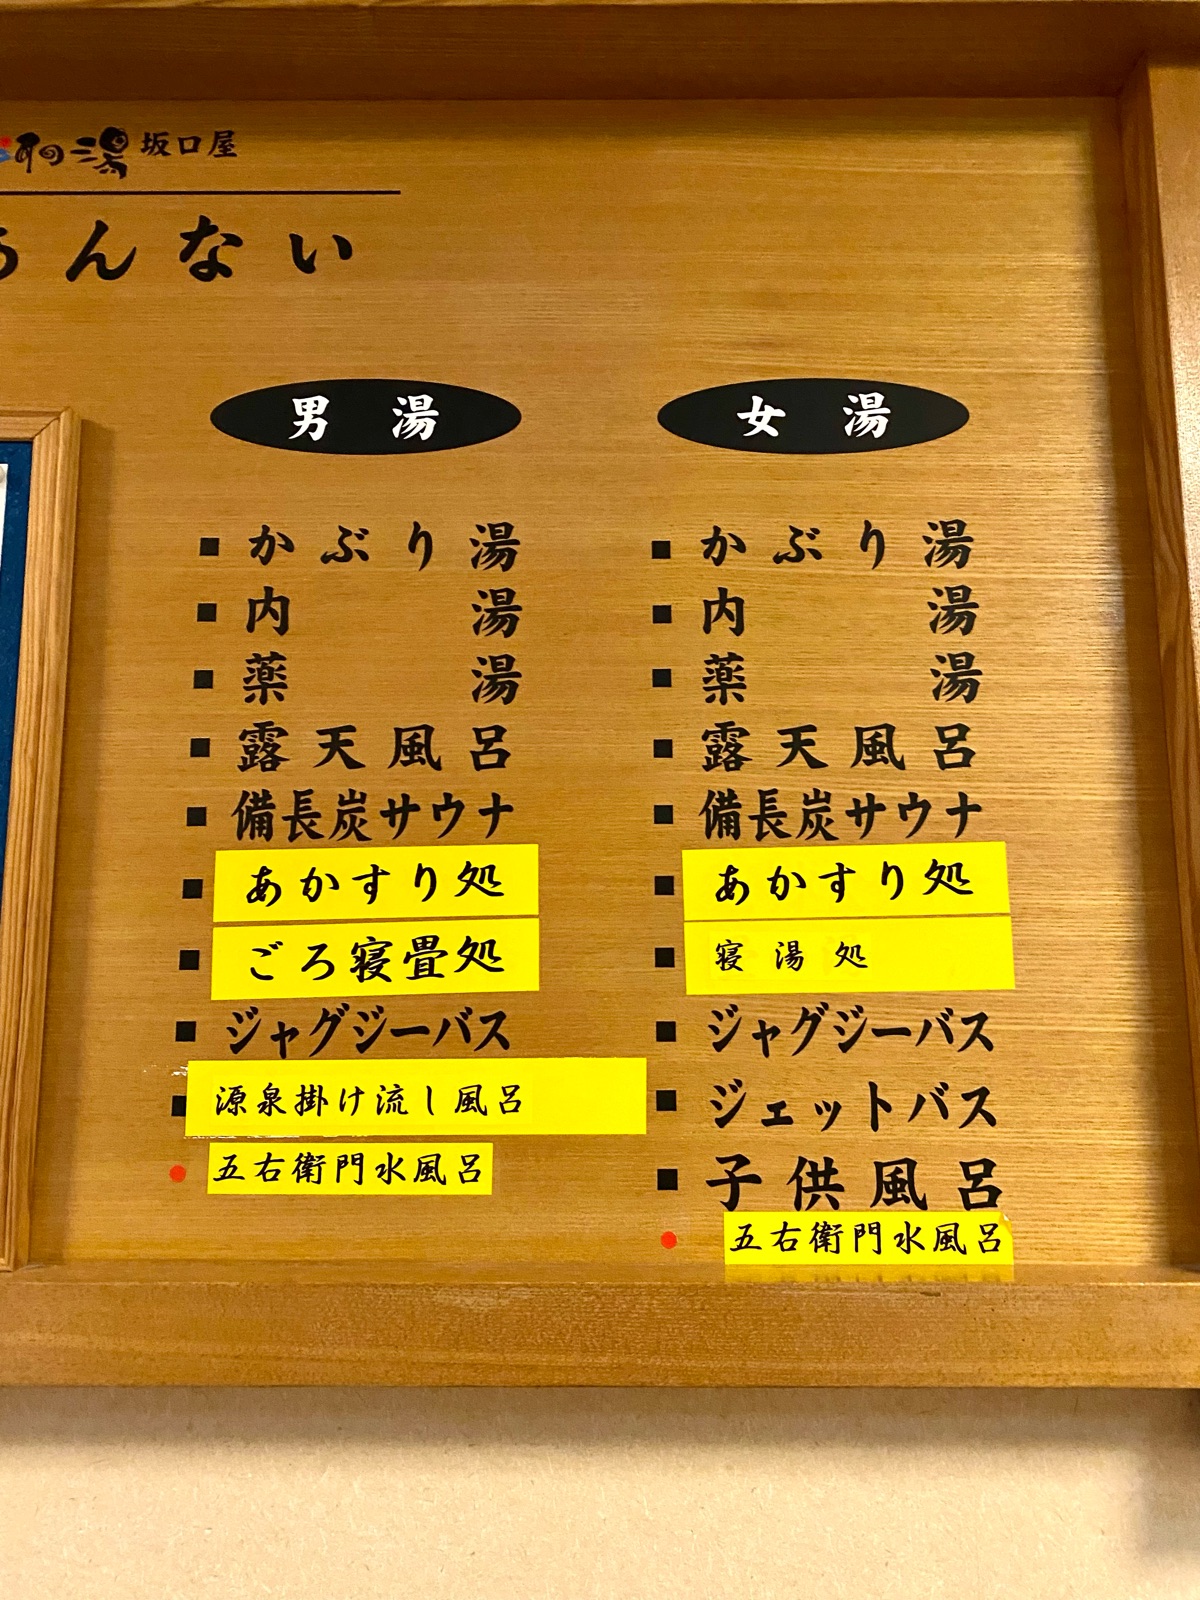 の湯 坂口屋
んない
男湯
かぶり湯
内湯
薬湯
露天風呂
備長炭サウナ
あかすり処
ごろ寝畳処
ジャグジーバス
源泉掛け流し風呂
五右衛門水風呂
女湯
かぶり湯
内湯
薬湯
露天風呂
備長炭サウナ
あかすり処
寝湯処
ジャグジーバス
ジェットバス
子供風呂
五右衛門水風呂